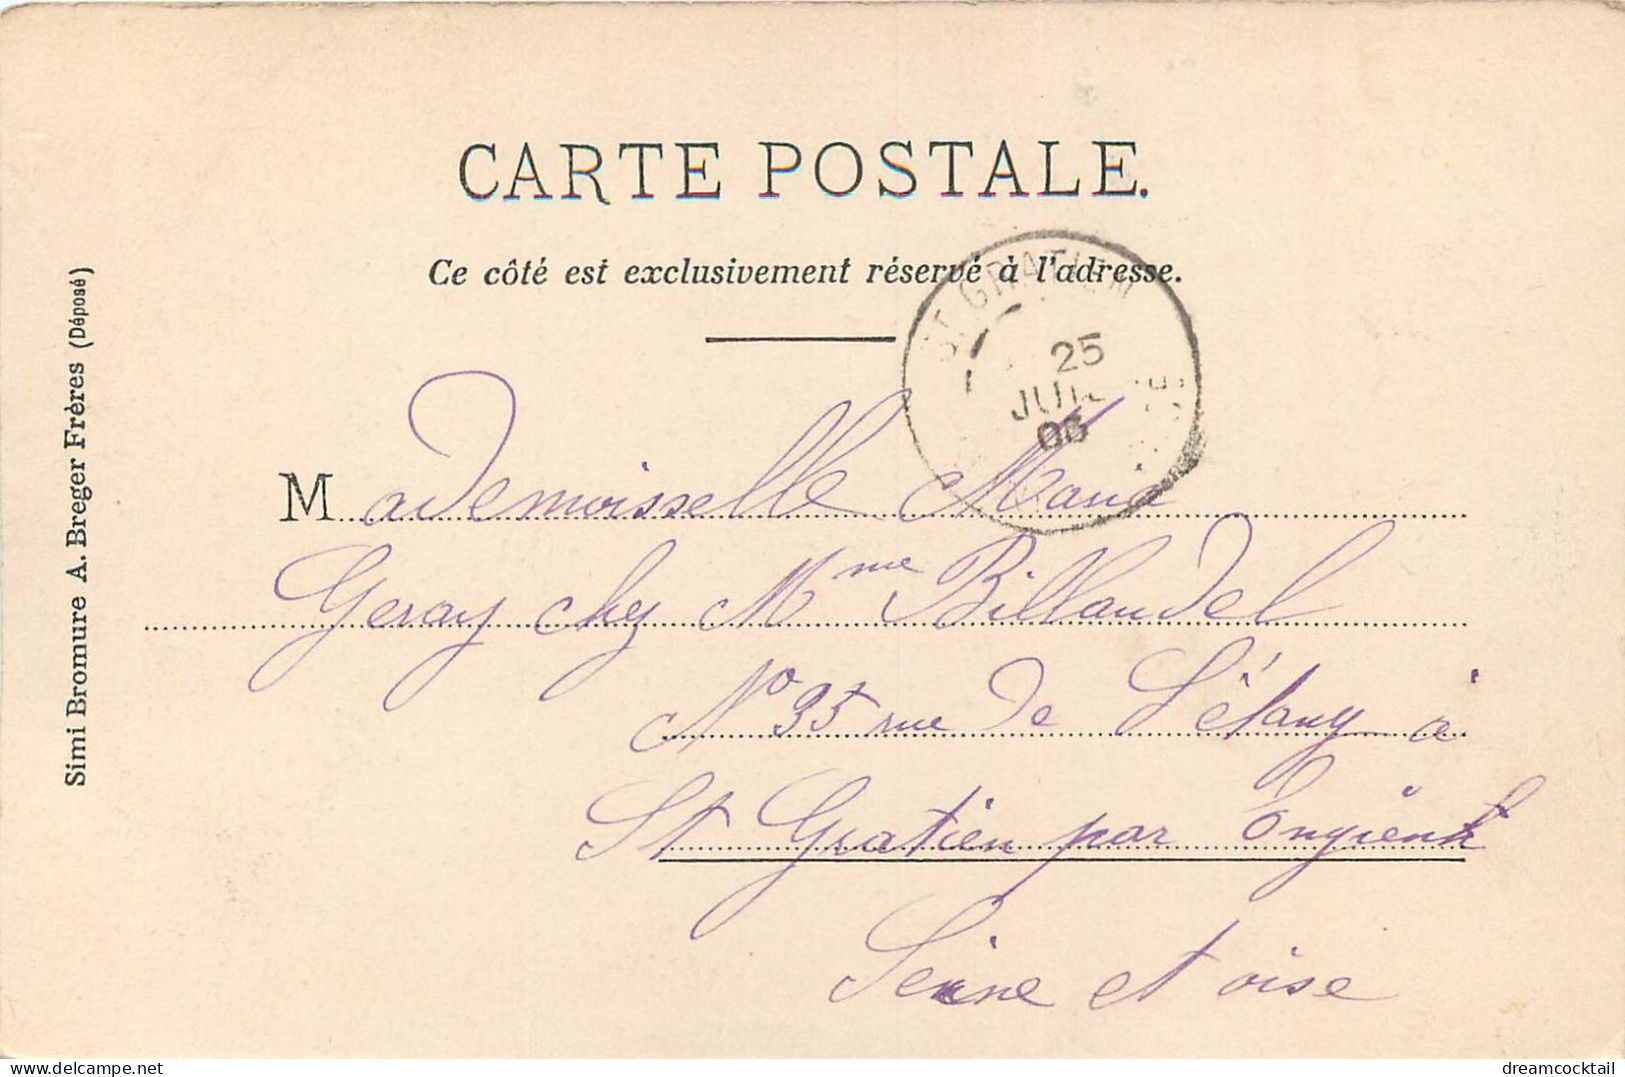 CARTE POSTALE.
Ce côté est exclusivement réservé à l'adresse.
ST GRATIEN
25
JUIL
06
OISE
Mademoisselle Marie
Geray chez Mme Billaudel
No 35 rue de L'étang à
St Gratien par Engient
Seine et oise
Simi Bromure A. Breger Frères (Déposé)
delcampe.net
dreamcocktail